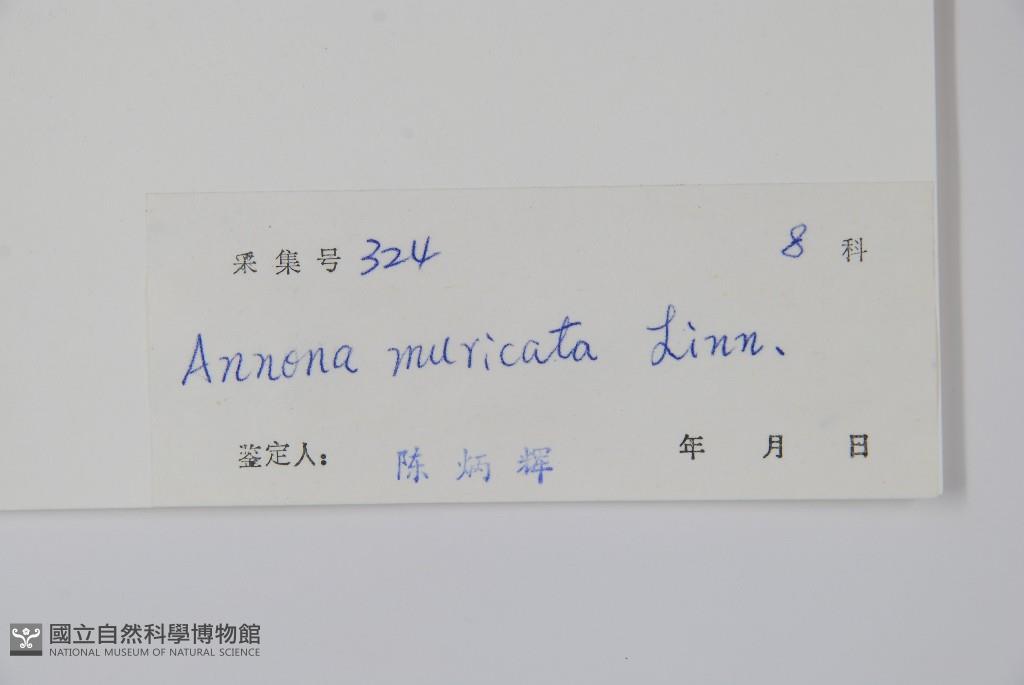 采集号 324 8 科
Annona muricata Linn.
鉴定人: 陈炳辉 年 月 日
國立自然科學博物館
NATIONAL MUSEUM OF NATURAL SCIENCE